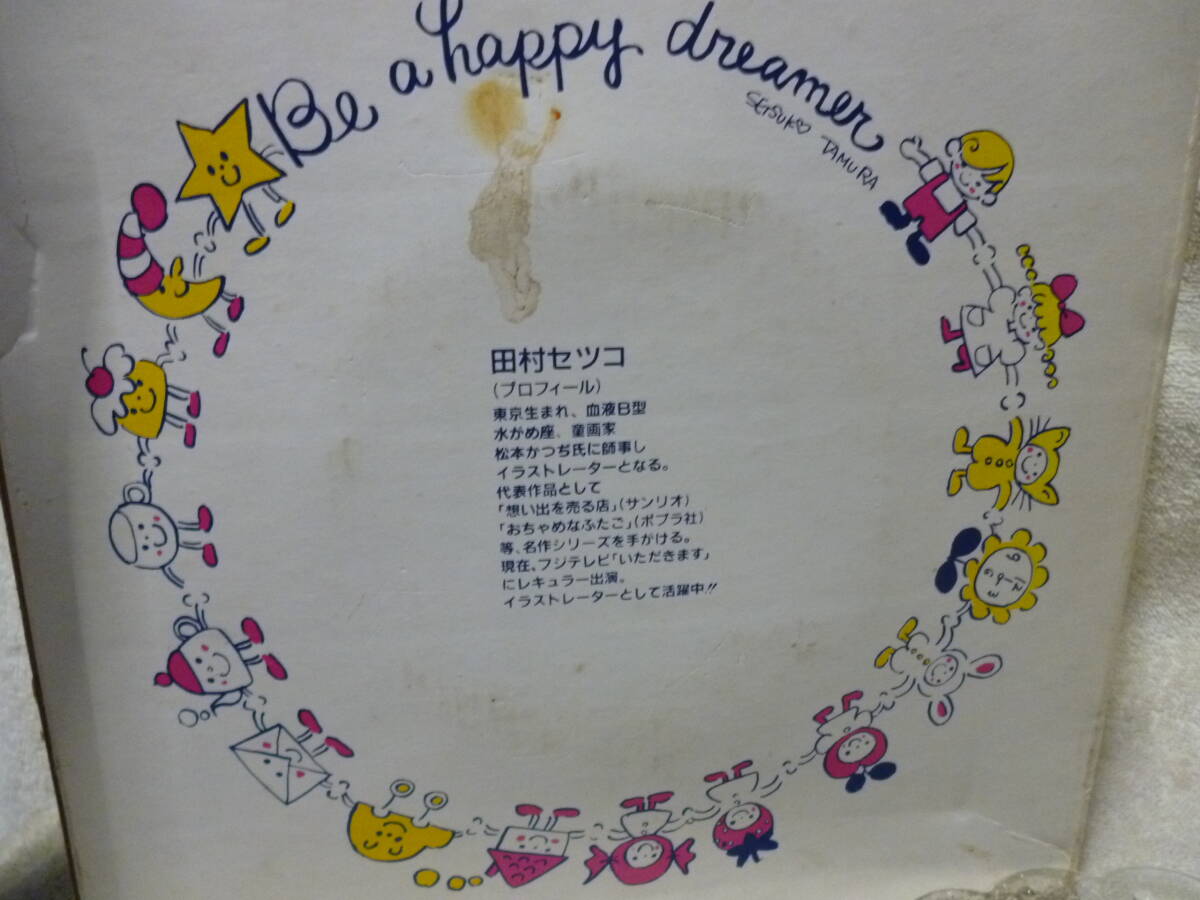 Be a happy dreamer
SETSUKO TAMURA
田村セツコ
(プロフィール)
東京生まれ、血液B型
水がめ座、童画家
松本かつぢ氏に師事し
イラストレーターとなる。
代表作品として
「想い出を売る店」(サンリオ)
「おちゃめなふたご」(ポプラ社)
等、名作シリーズを手がける。
現在、フジテレビ「いただきます」
にレギュラー出演。
イラストレーターとして活躍中!!
12
3
6
9